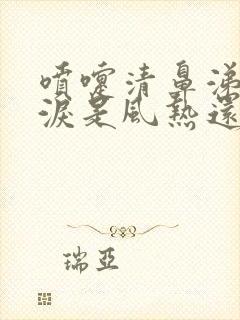 噴嚏清鼻涕
淚是風熱還
瑞亞